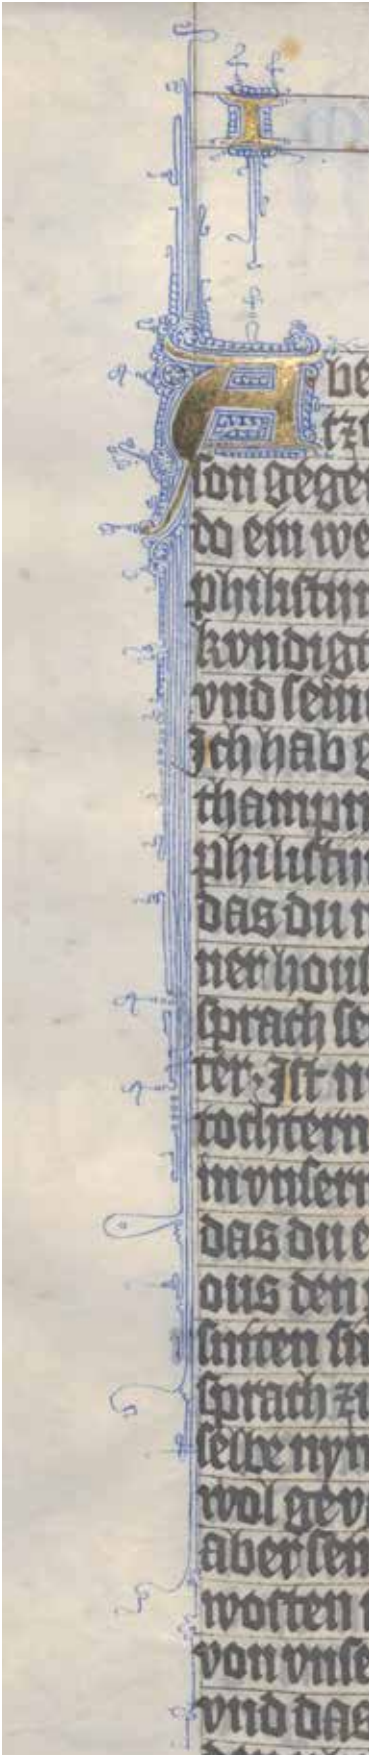 I
Abe
tzo
son gegen
do ein we
philistin
kvndigt
vnd sein
Ich hab g
thampn
philistin
das du n
ner hous
sprach se
ter. Ist ni
tochtern
in vnsern
das du e
ous den
sniten
sprach zu
selbe nym
wol gev
aber sein
wosten
von vnse
vnd das